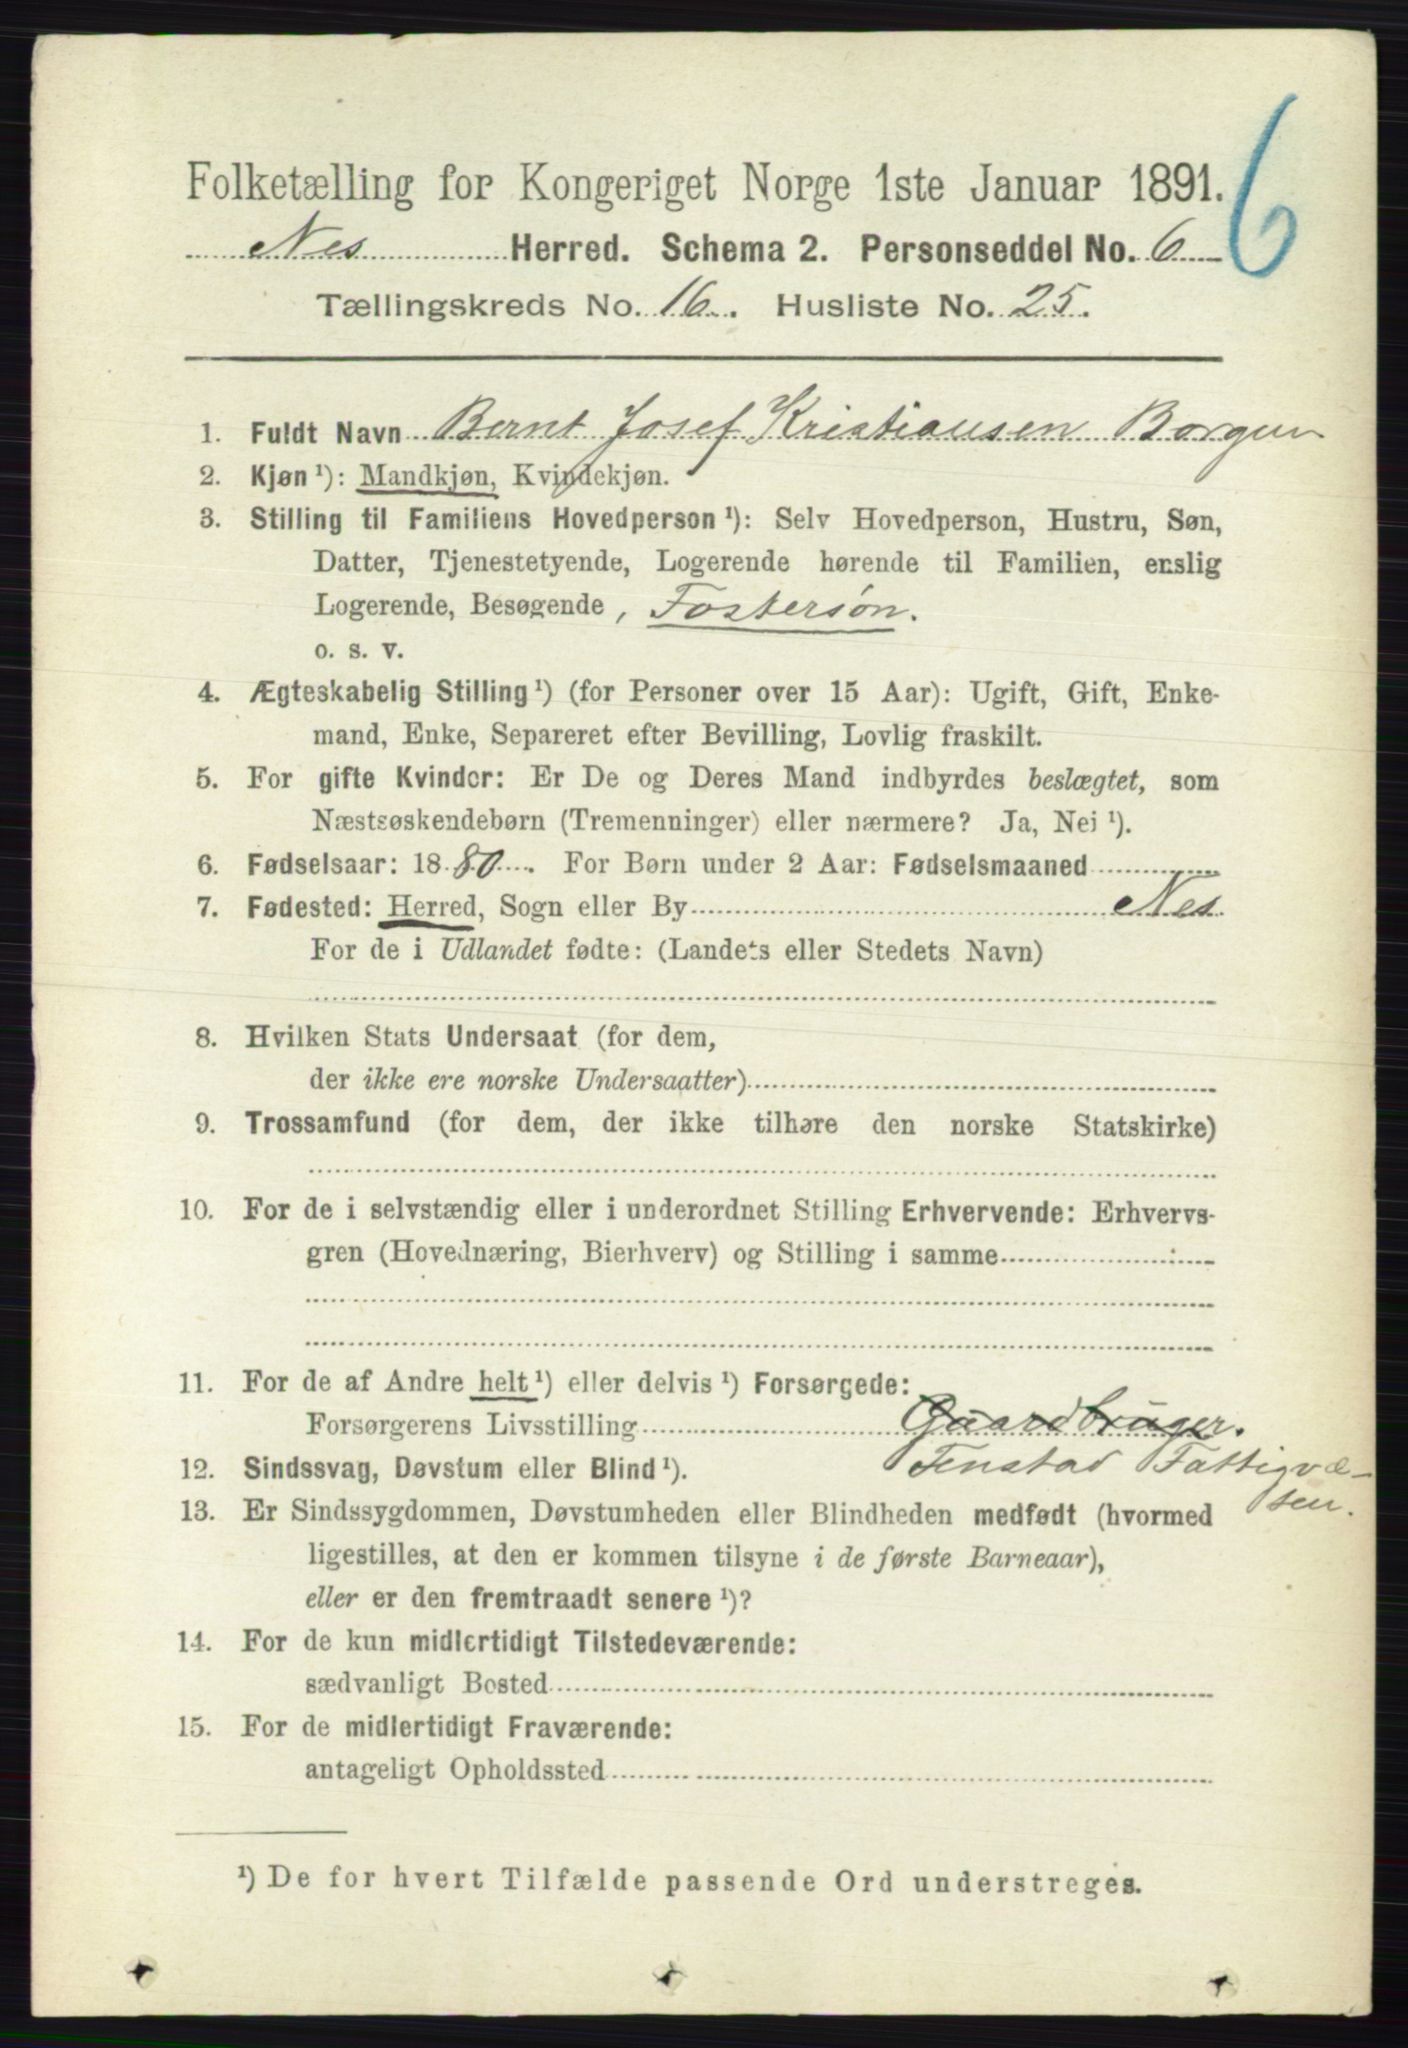 6
Folketælling for Kongeriget Norge 1ste Januar 1891.
Nes Herred. Schema 2. Personseddel No. 6
Tællingskreds No. 16. Husliste No. 25.
1. Fuldt Navn Bernt Josef Kristiansen Borgen
2. Kjøn ¹): Mandkjøn, Kvindekjøn.
3. Stilling til Familiens Hovedperson ¹): Selv Hovedperson, Hustru, Søn,
Datter, Tjenestetyende, Logerende hørende til Familien, enslig
Logerende, Besøgende, Fostersøn.
o. s. v.
4. Ægteskabelig Stilling ¹) (for Personer over 15 Aar): Ugift, Gift, Enke-
mand, Enke, Separeret efter Bevilling, Lovlig fraskilt.
5. For gifte Kvinder: Er De og Deres Mand indbyrdes beslægtet, som
Næstsøskendebørn (Tremenninger) eller nærmere? Ja, Nei ¹).
6. Fødselsaar: 1880. For Børn under 2 Aar: Fødselsmaaned
7. Fødested: Herred, Sogn eller By Nes
For de i Udlandet fødte: (Landets eller Stedets Navn)
8. Hvilken Stats Undersaat (for dem,
der ikke ere norske Undersaatter)
9. Trossamfund (for dem, der ikke tilhøre den norske Statskirke)
10. For de i selvstændig eller i underordnet Stilling Erhvervende: Erhvervs-
gren (Hovednæring, Bierhverv) og Stilling i samme
11. For de af Andre helt ¹) eller delvis ¹) Forsørgede:
Forsørgerens Livsstilling Gaardbruger.
12. Sindssvag, Døvstum eller Blind ¹). Fenstad Fattigvæ-
sen.
13. Er Sindssygdommen, Døvstumheden eller Blindheden medfødt (hvormed
ligestilles, at den er kommen tilsyne i de første Barneaar),
eller er den fremtraadt senere ¹)?
14. For de kun midlertidigt Tilstedeværende:
sædvanligt Bosted
15. For de midlertidigt Fraværende:
antageligt Opholdssted
¹) De for hvert Tilfælde passende Ord understreges.